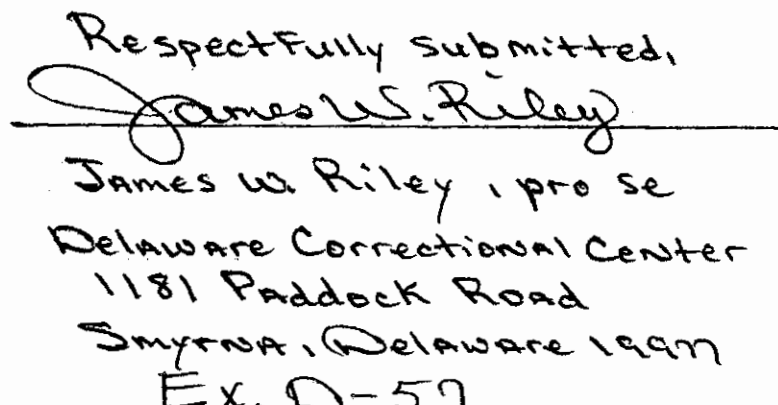 Respectfully submitted,
James W. Riley
James W. Riley, pro se
Delaware Correctional Center
1181 Paddock Road
Smyrna, Delaware 19977
Ex. D-57